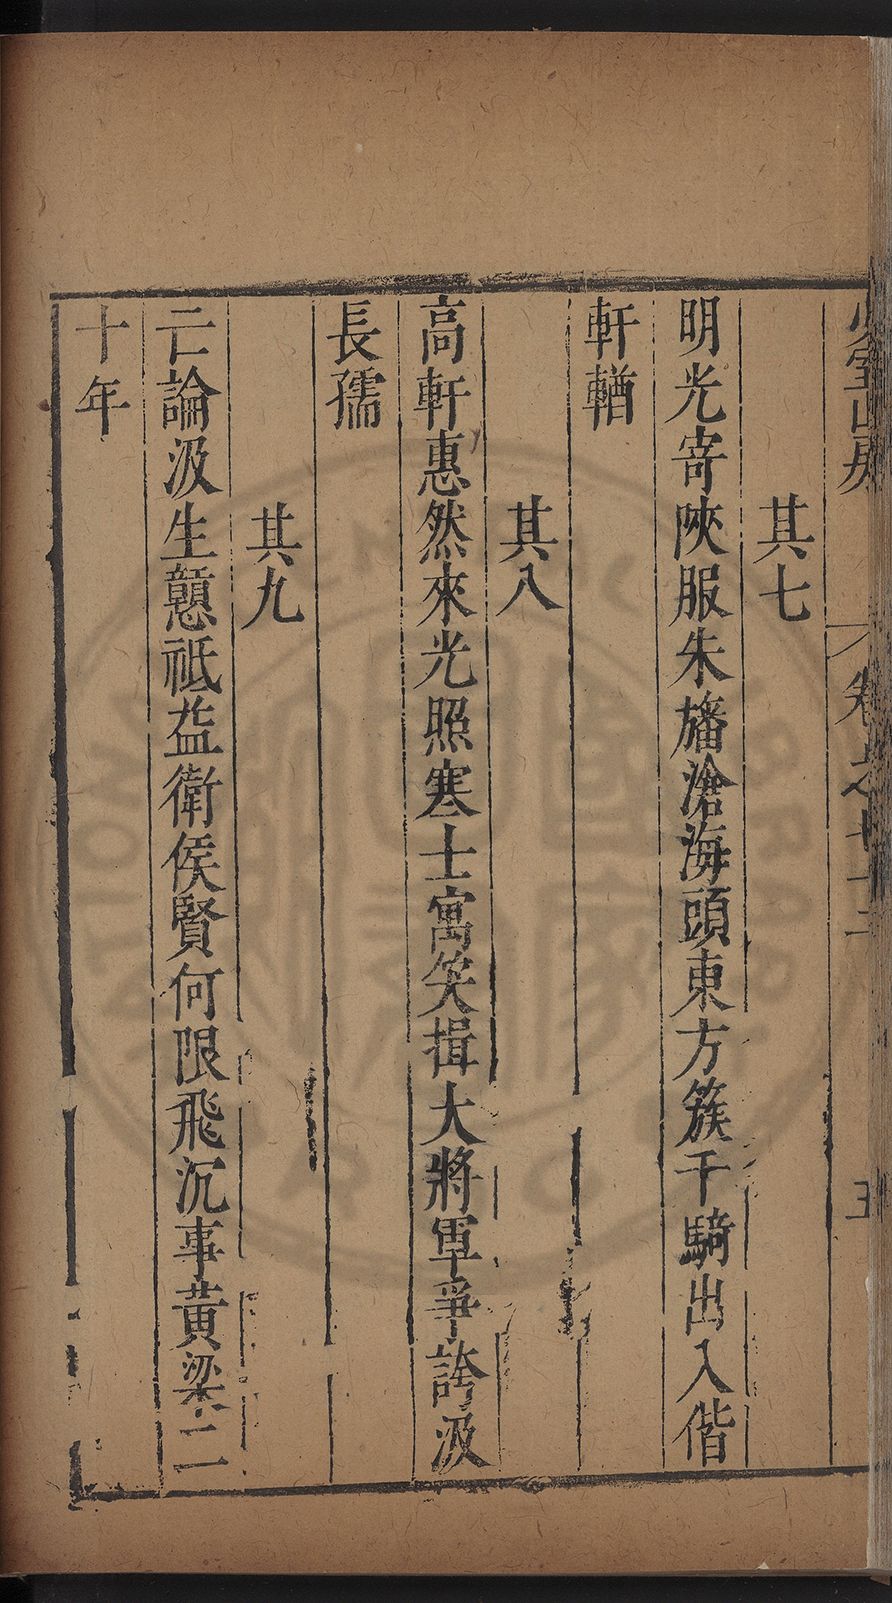 卷之七十二
五
其七
明光寄陝服朱旛滄海頭東方簇千騎出入偕
軒輶
其八
高軒惠然來光照寒士寓笑揖大將軍爭誇汲
長孺
其九
亡論汲生戇祗益衛侯賢何限飛沉事黄粱二
十年